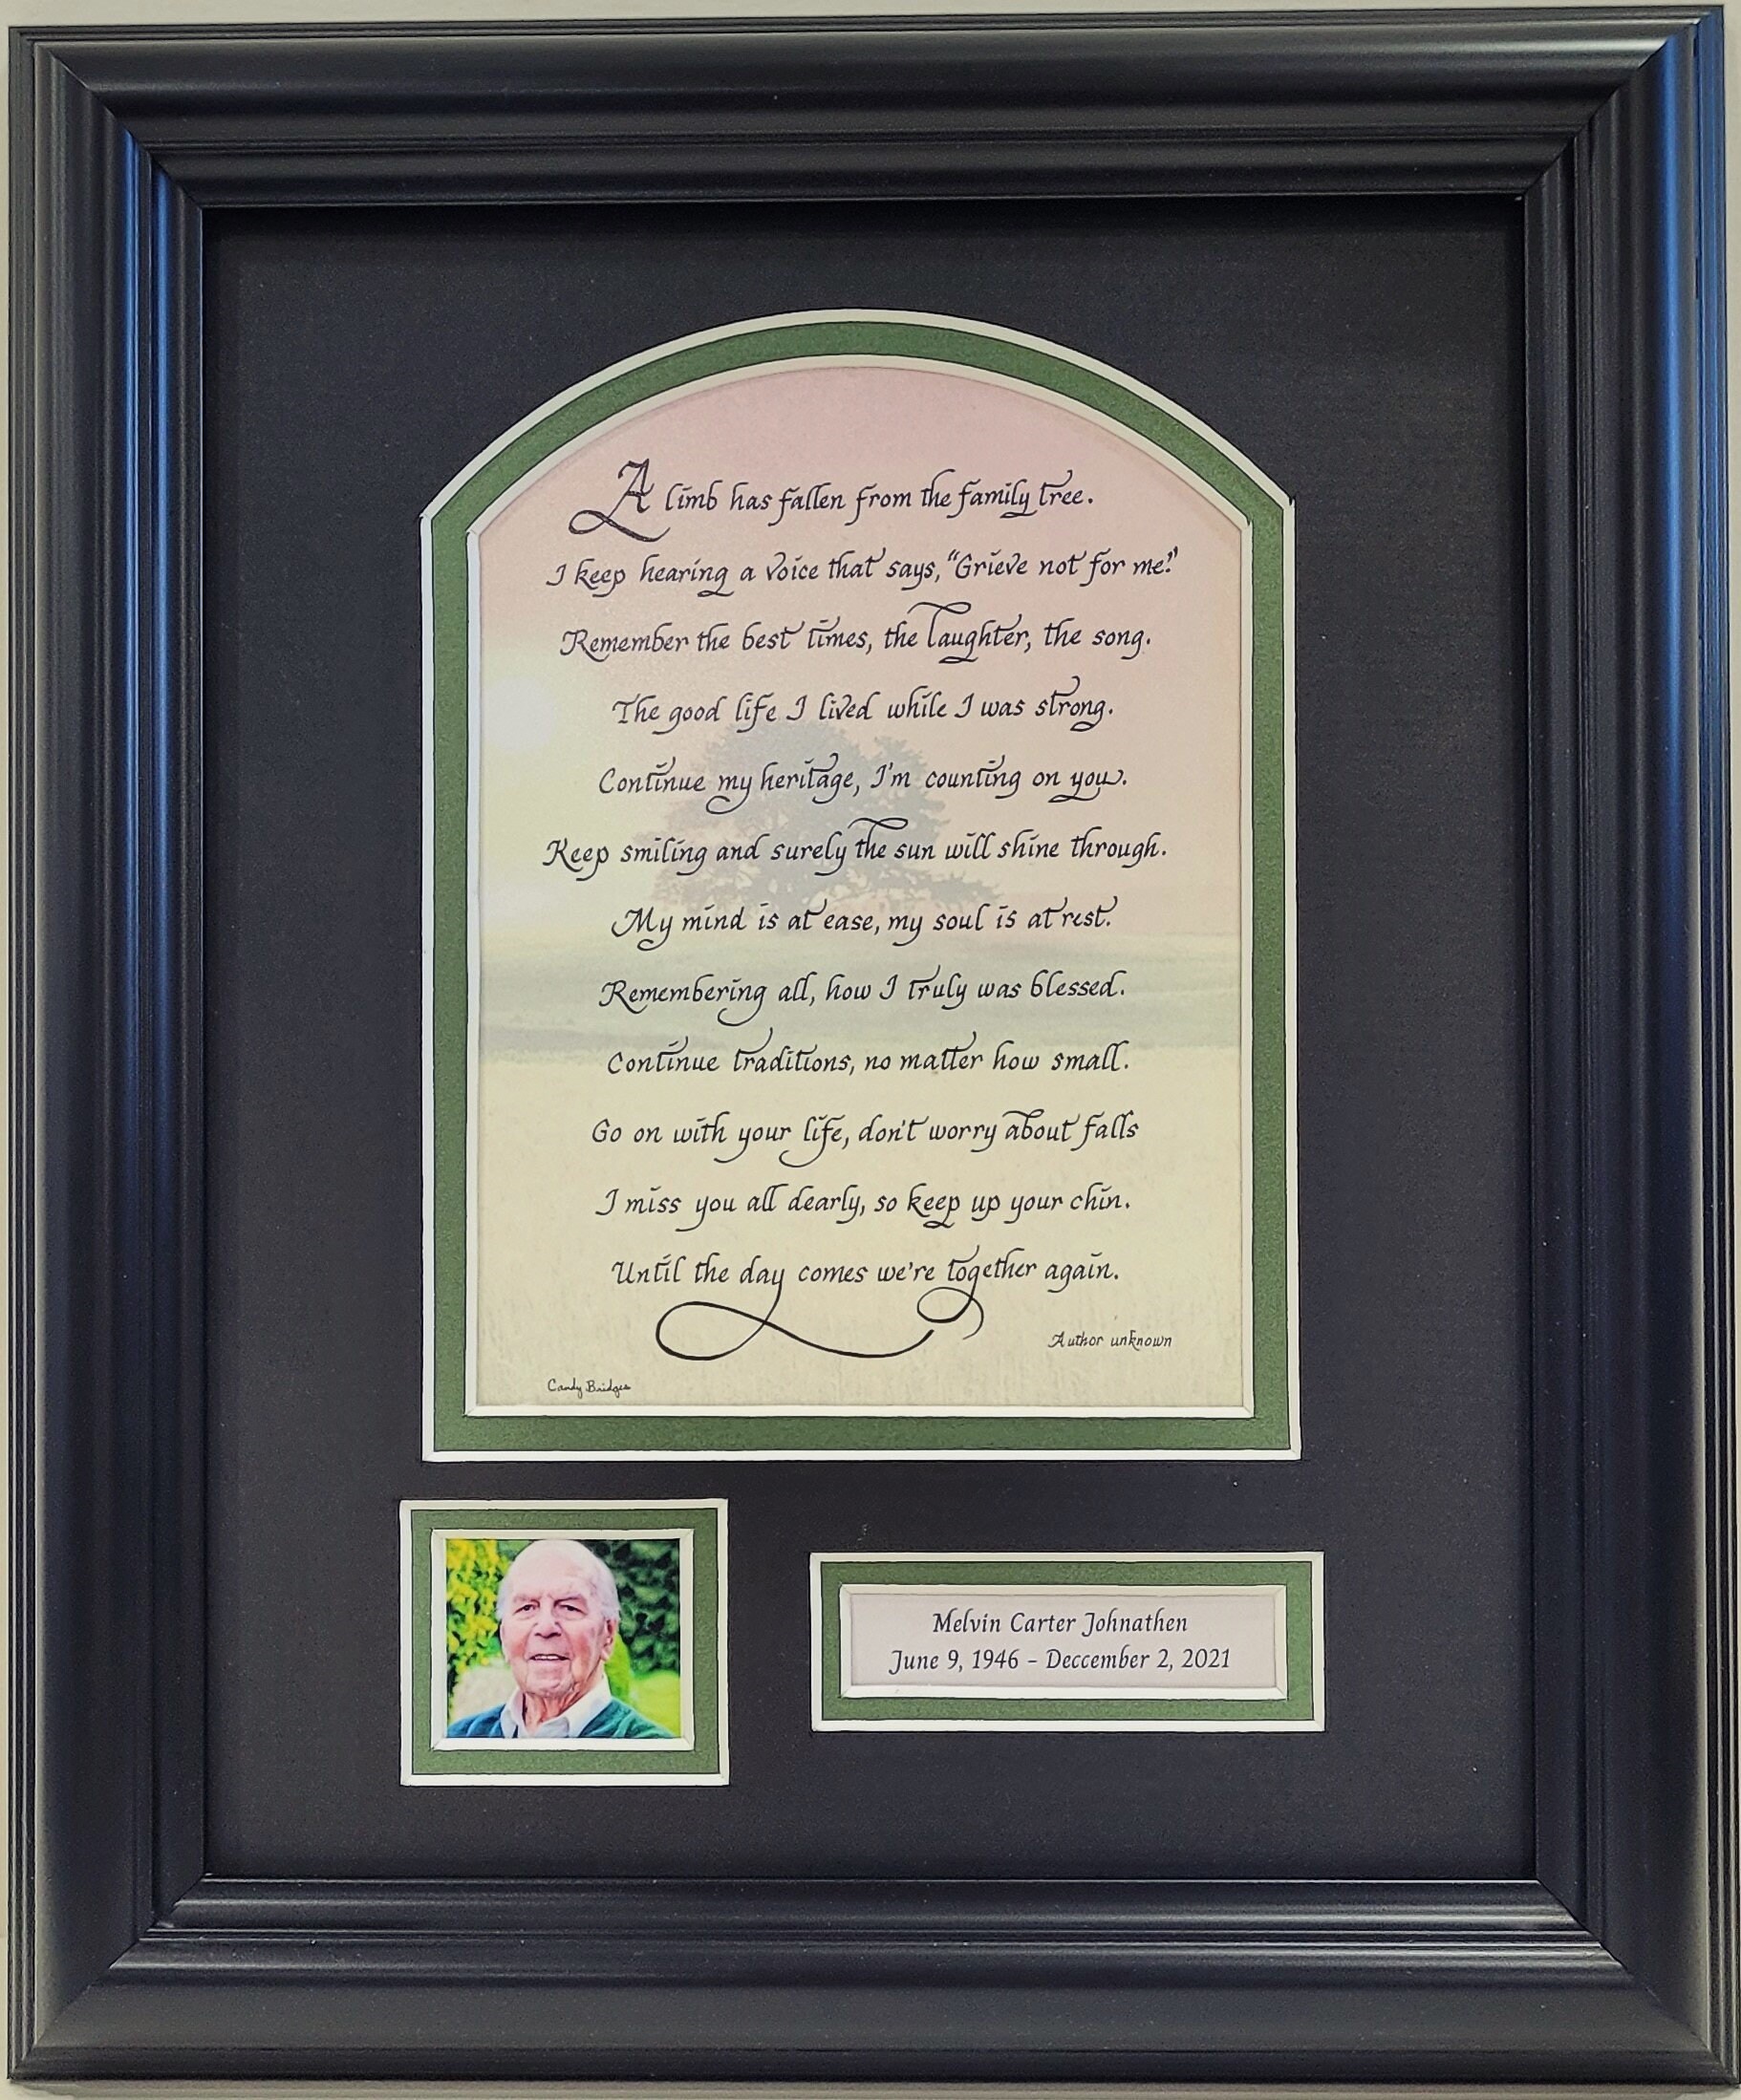 A limb has fallen from the family tree.
I keep hearing a voice that says, "Grieve not for me."
Remember the best times, the laughter, the song.
The good life I lived while I was strong.
Continue my heritage, I'm counting on you.
Keep smiling and surely the sun will shine through.
My mind is at ease, my soul is at rest.
Remembering all, how I truly was blessed.
Continue traditions, no matter how small.
Go on with your life, don't worry about falls
I miss you all dearly, so keep up your chin.
Until the day comes we're together again.
Author unknown
Candy Bridges
Melvin Carter Johnathen
June 9, 1946 - Deccember 2, 2021